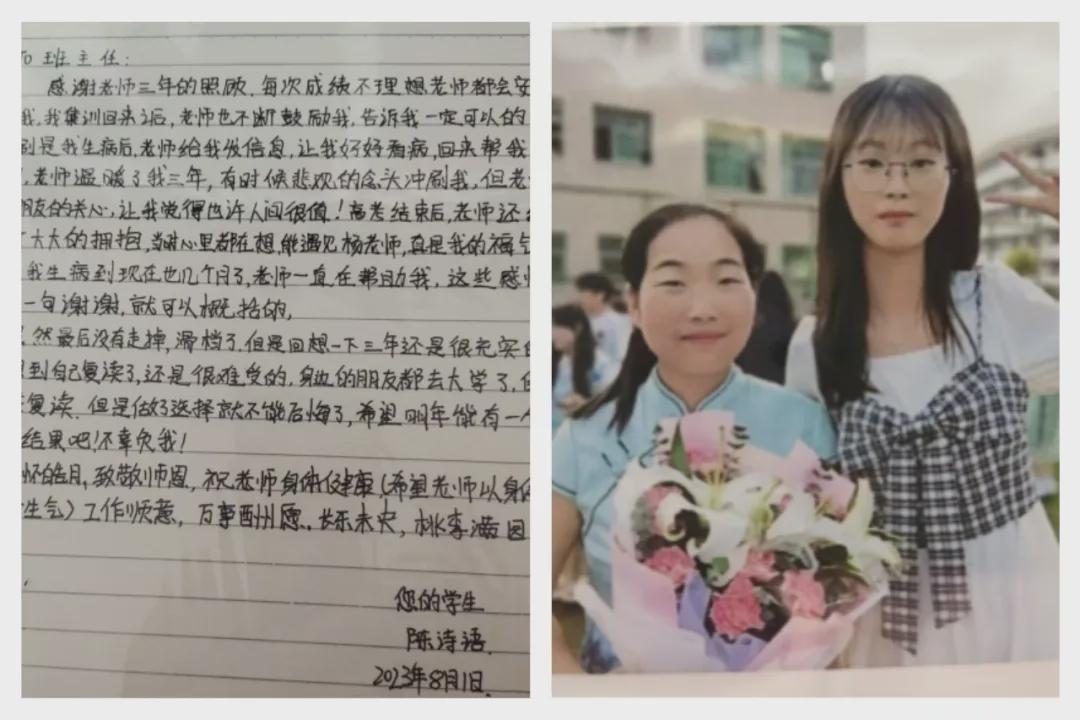 To 班主任:
感谢老师三年的照顾,每次成绩不理想老师都会安
我,我集训回来之后,老师也不断鼓励我,告诉我一定可以的
别是我生病后,老师给我发信息,让我好好看病,回来帮我
,老师温暖了我三年,有时候悲观的念头冲刷我,但老
朋友的关心,让我觉得也许人间很值!高考结束后,老师还
大大的拥抱,当时心里都在想,能遇见杨老师,真是我的福气
我生病到现在也几个月了,老师一直在帮助我,这些感
一句谢谢,就可以概括的,
然最后没有走掉,滑档了,但是回想一下三年还是很充实
到自己复读了,还是很难受的,身边的朋友都去大学了,
复读.但是做了选择就不能后悔了,希望明年能有一个
结果吧!不辜负我!
怀皓月,致敬师恩,祝老师身体健康(希望老师以身体
生气)工作顺意,万事酬愿,长乐未央,桃李满园
您的学生
陈诗语.
2023年8月1日.